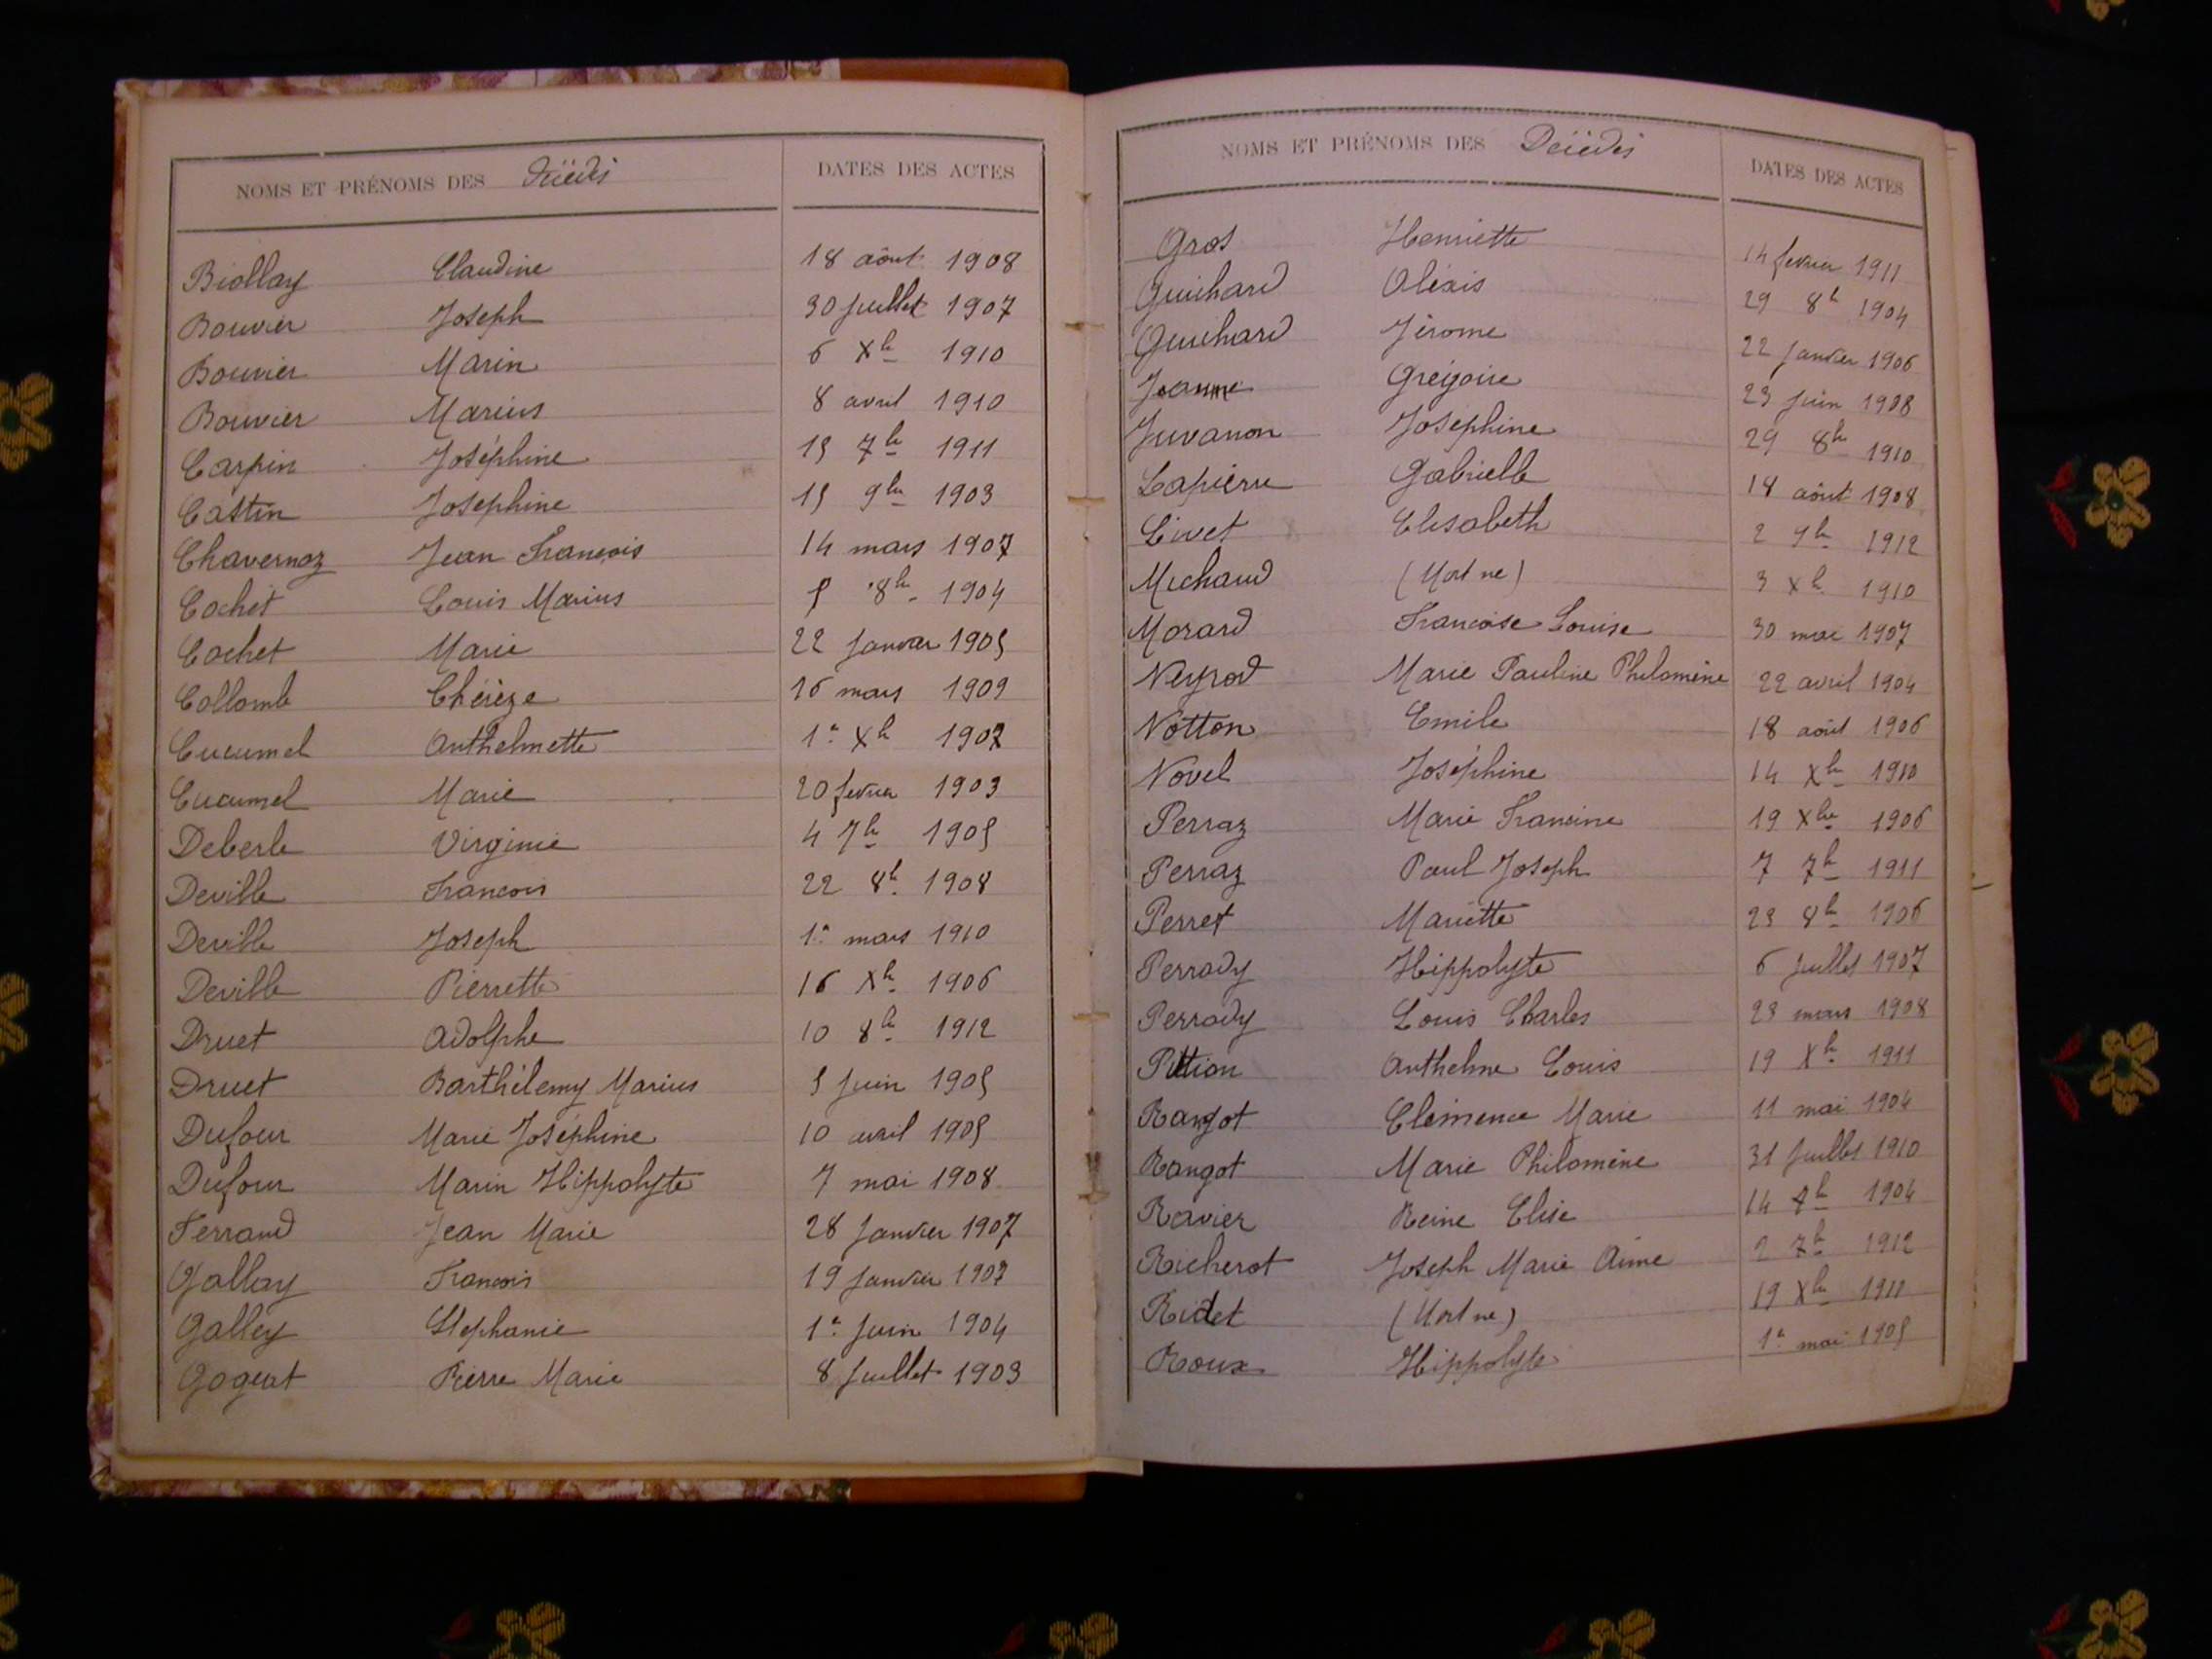 NOMS ET PRÉNOMS DES Décédés DATES DES ACTES
Biollay Claudine 18 août 1908
Bouvier Joseph 30 Juillet 1907
Bouvier Marin 6 Xbre 1910
Bouvier Marius 8 avril 1910
Carpin Joséphine 15 7bre 1911
Castin Josephine 15 9bre 1903
Chavernoz Jean François 14 mars 1907
Cochet Louis Marius 5 8bre 1904
Cochet Marie 22 Janvier 1905
Collomb Thérèze 16 mars 1909
Cucumel Anthelmette 1er Xbre 1907
Cucumel Marie 20 fevrier 1903
Deberle Virginie 4 7bre 1905
Deville Francois 22 8bre 1908
Deville Joseph 1er mars 1910
Deville Pierrette 16 Xbre 1906
Druet Adolphe 10 8bre 1912
Druet Barthélemy Marius 5 Juin 1905
Dufour Marie Joséphine 10 avril 1905
Dufour Marin Hippolyte 7 mai 1908
Ferrand Jean Marie 28 Janvier 1907
Gallay Francois 19 Janvier 1907
Galley Stephanie 1er Juin 1904
Gogeat Pierre Marie 8 Juillet 1903
NOMS ET PRÉNOMS DES Décédés DATES DES ACTES
Gros Henriette 14 fevrier 1911
Guichard Aléxis 29 8bre 1904
Guichard Jérome 22 Janvier 1906
Jeanne Grégoire 23 Juin 1908
Juvanon Joséphine 29 8bre 1910
Lapierre Gabrielle 18 août 1908
Livet Elisabeth 2 7bre 1912
Michaud (Mort ne) 3 Xbre 1910
Morard Francoise Louise 30 mai 1907
Neyrod Marie Pauline Philomène 22 avril 1904
Notton Emile 18 août 1906
Novel Joséphine 14 Xbre 1910
Perraz Marie Francine 19 Xbre 1906
Perraz Paul Joseph 7 7bre 1911
Perret Mariette 23 8bre 1906
Perrady Hippolyte 6 Juillet 1907
Perrady Louis Charles 23 mars 1908
Pittion Anthelme Louis 19 Xbre 1911
Rangot Clémence Marie 11 mai 1904
Rangot Marie Philomène 31 Juillet 1910
Ravier Reine Elise 14 1904
Richerot Joseph Marie Aimé 2 7bre 1912
Ridet (Mort ne) 19 Xbre 1911
Roux Hippolyte 1er mai 1905